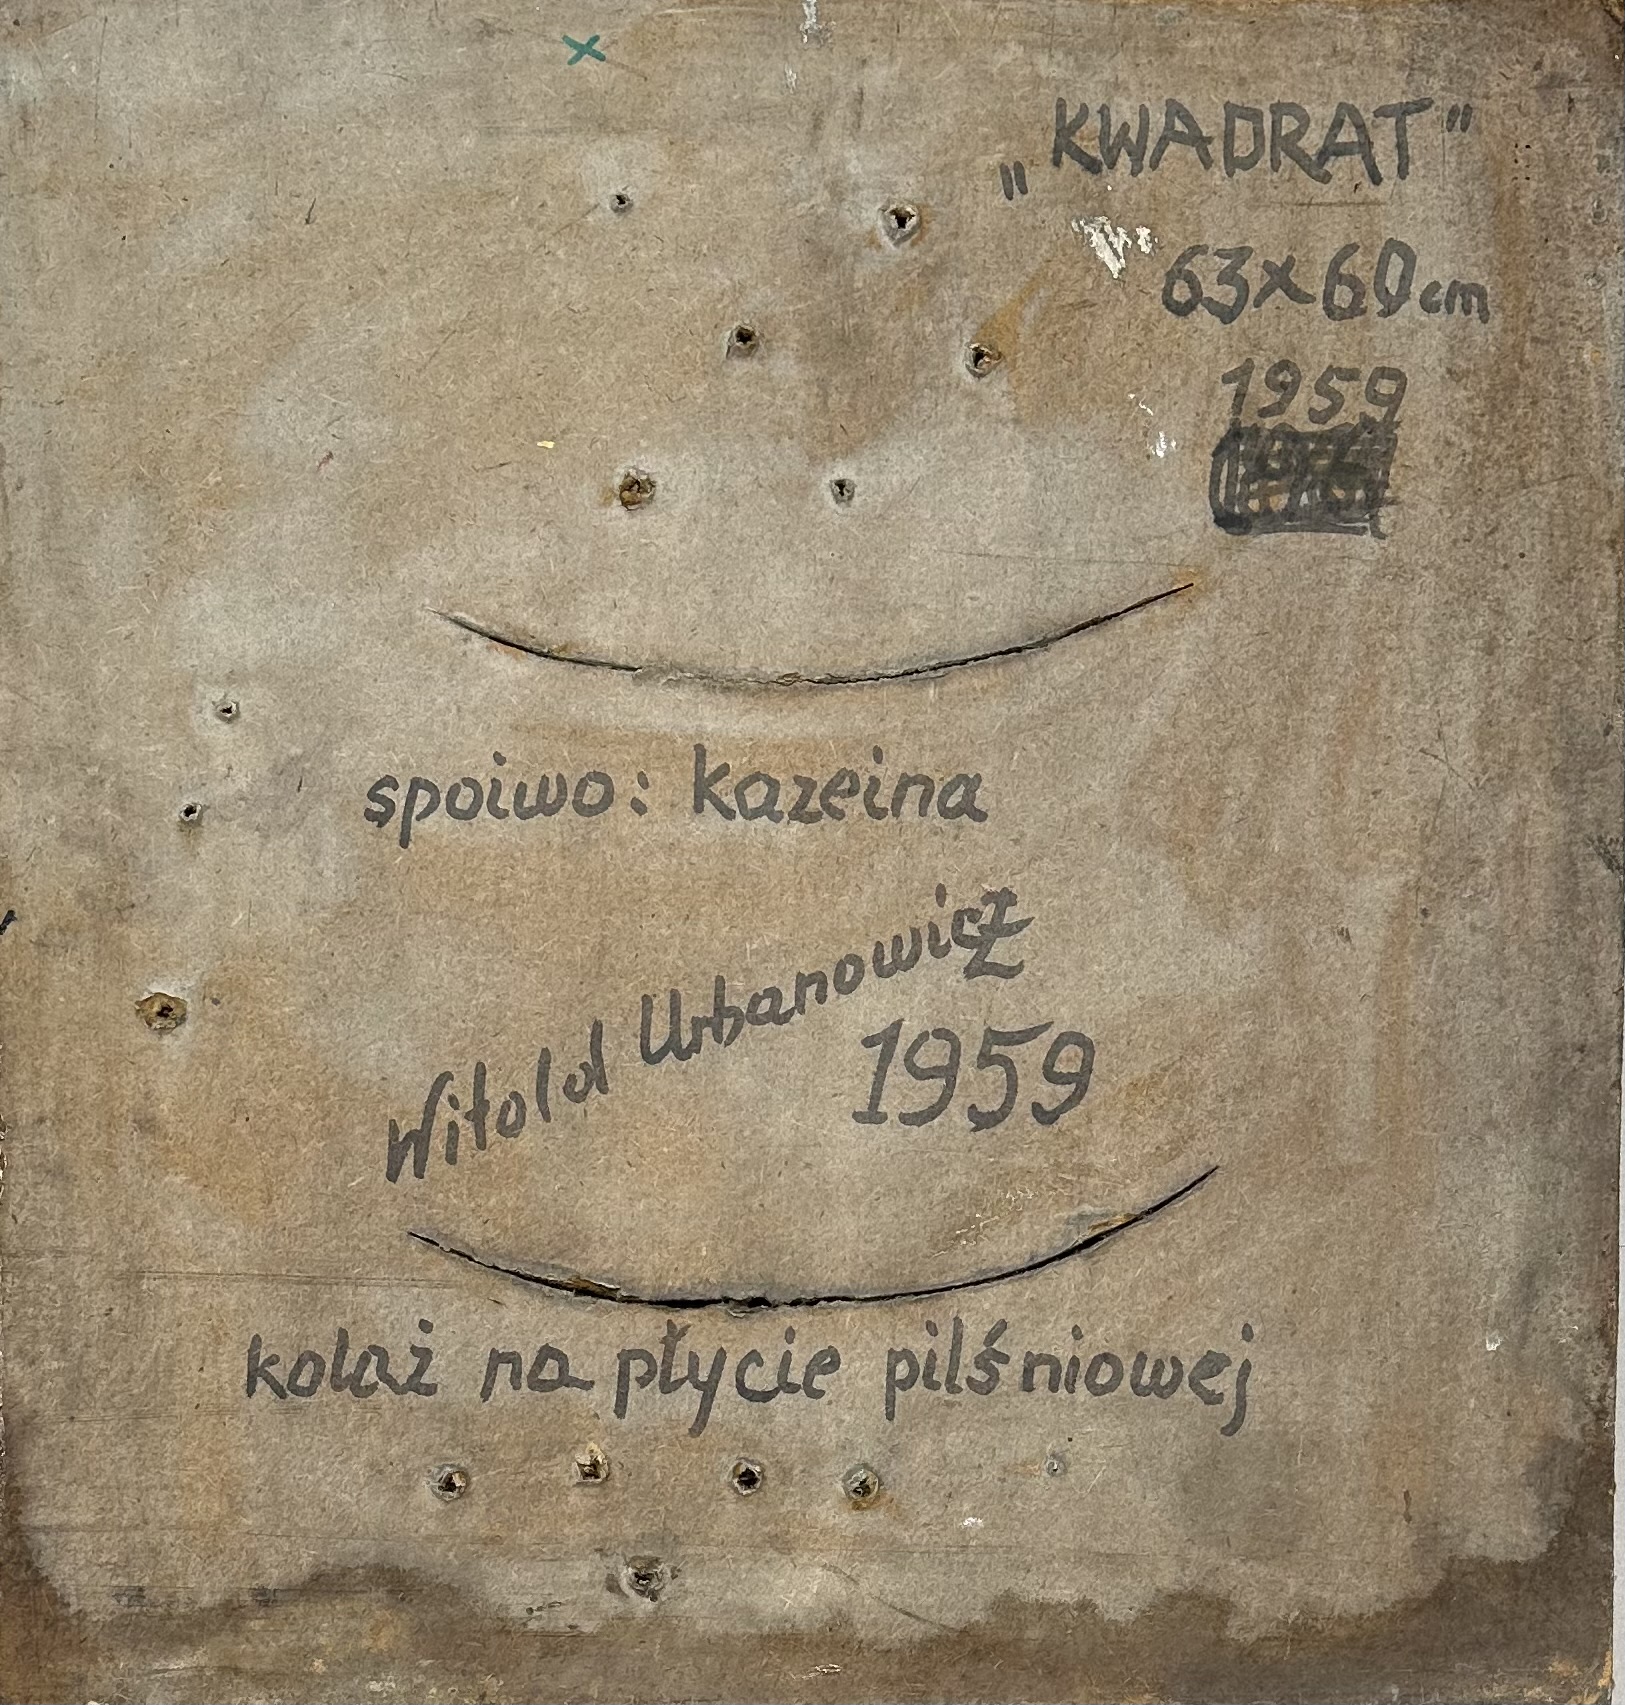 „KWADRAT"
63x60cm
1959
spoiwo: kazeina
Witold Urbanowicz
1959
kolaż na płycie pilśniowej